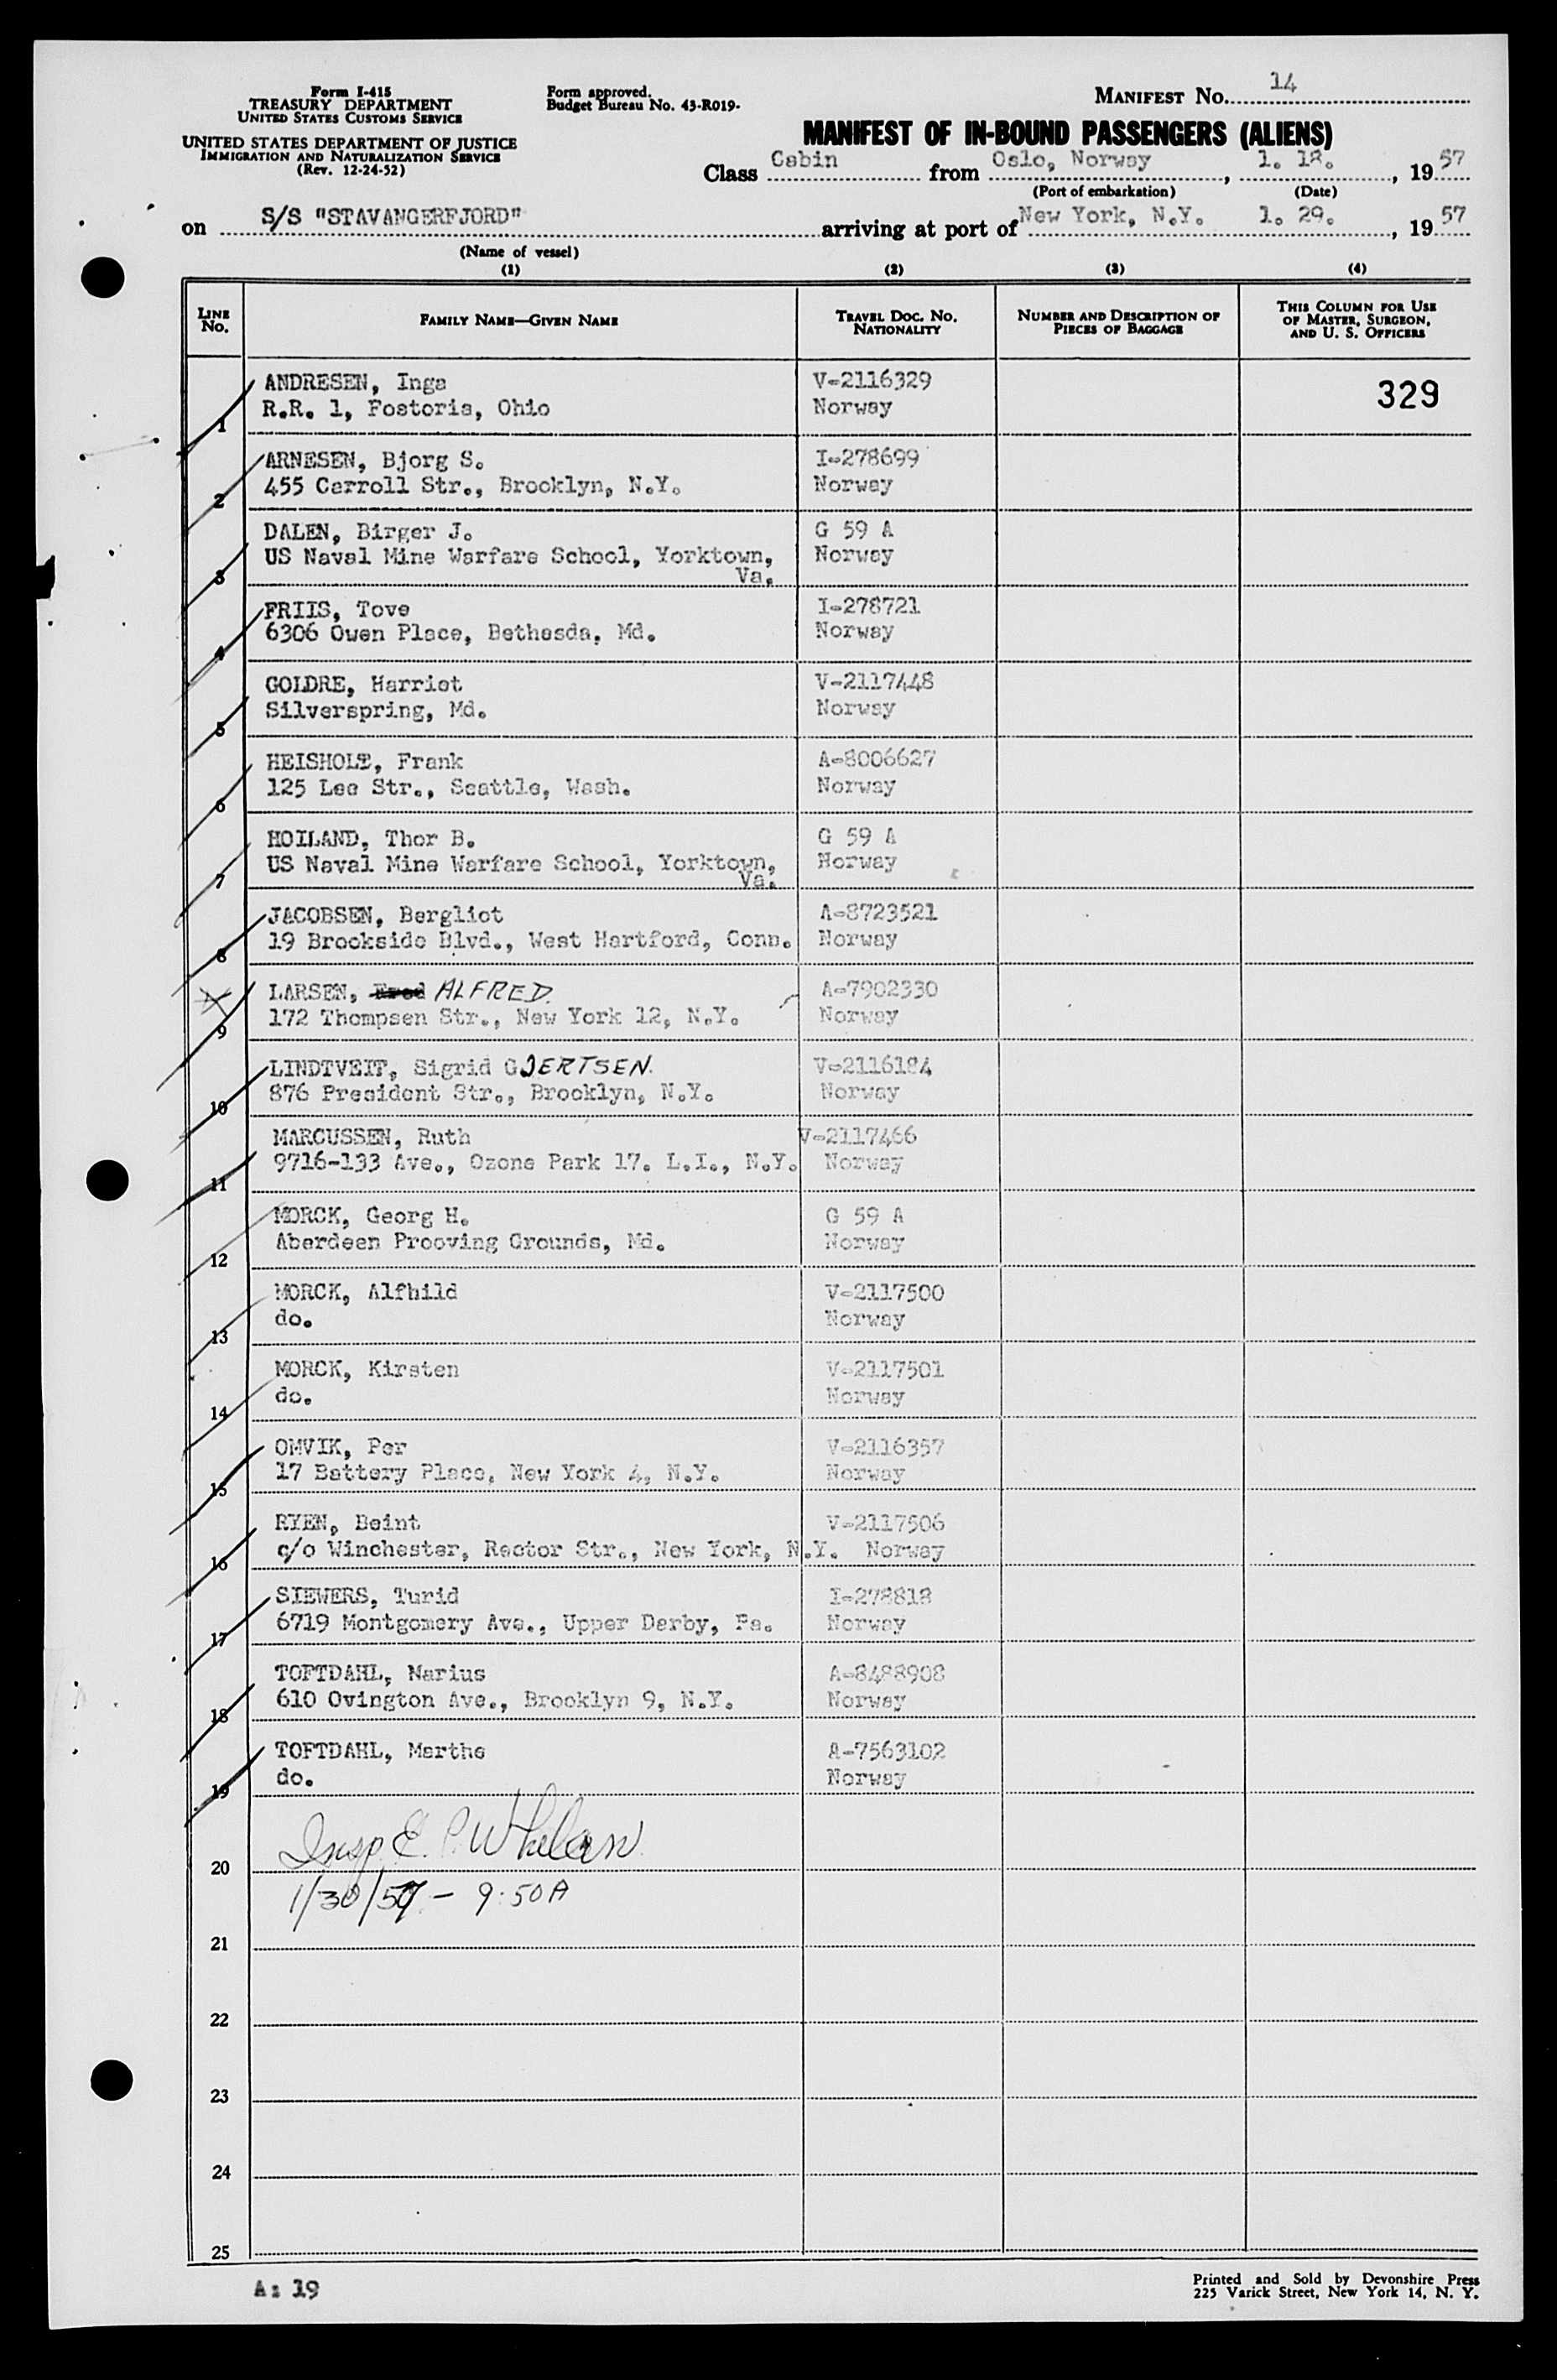 Form I-415
TREASURY DEPARTMENT
UNITED STATES CUSTOMS SERVICE
UNITED STATES DEPARTMENT OF JUSTICE
IMMIGRATION AND NATURALIZATION SERVICE
(Rev. 12-24-52)
Form approved.
Budget Bureau No. 43-R019-
MANIFEST No. 14
MANIFEST OF IN-BOUND PASSENGERS (ALIENS)
Class Cabin from Oslo, Norway, 1. 18., 19 57
(Port of embarkation) (Date)
on S/S "STAVANGERFJORD" arriving at port of New York, N.Y. 1. 29., 19 57
(Name of vessel)
(1) (2) (3) (4)
LINE No. FAMILY NAME—GIVEN NAME TRAVEL DOC. NO. NATIONALITY NUMBER AND DESCRIPTION OF PIECES OF BAGGAGE THIS COLUMN FOR USE OF MASTER, SURGEON, AND U. S. OFFICERS
ANDRESEN, Inga V-2116329 329
1 R.R. 1, Fostoria, Ohio Norway
ARNESEN, Bjorg S. I-278699
2 455 Carroll Str., Brooklyn, N.Y. Norway
DALEN, Birger J. G 59 A
3 US Naval Mine Warfare School, Yorktown, Norway
Va.
FRIIS, Tove I-278721
4 6306 Owen Place, Bethesda, Md. Norway
GOLDRE, Harriet V-2117448
5 Silverspring, Md. Norway
HEISHOLT, Frank A-8006627
6 125 Lee Str., Seattle, Wash. Norway
HOILAND, Thor B. G 59 A
7 US Naval Mine Warfare School, Yorktown, Norway
Va.
JACOBSEN, Bergliot A-8723521
8 19 Brookside Blvd., West Hartford, Conn. Norway
LARSEN, Fred ALFRED. A-7902330
9 172 Thompsen Str., New York 12, N.Y. Norway
LINDTVEIT, Sigrid GJERTSEN. V-2116184
10 876 President Str., Brooklyn, N.Y. Norway
MARCUSSEN, Ruth V-2117466
11 9716-133 Ave., Ozone Park 17. L.I., N.Y. Norway
MORCK, Georg H. G 59 A
12 Aberdeen Prooving Grounds, Md. Norway
MORCK, Alfhild V-2117500
13 do. Norway
MORCK, Kirsten V-2117501
14 do. Norway
OMVIK, Per V-2116357
15 17 Battery Place, New York 4, N.Y. Norway
RYEN, Beint V-2117506
16 c/o Winchester, Rector Str., New York, N.Y. Norway
SIEWERS, Turid I-278818
17 6719 Montgomery Ave., Upper Derby, Pa. Norway
TOFTDAHL, Narius A-8488908
18 610 Ovington Ave., Brooklyn 9, N.Y. Norway
TOFTDAHL, Marthe A-7563102
19 do. Norway
20 Insp E. P. Whelan
1/30/57 - 9:50A
21
22
23
24
25
A: 19
Printed and Sold by Devonshire Press
225 Varick Street, New York 14, N. Y.